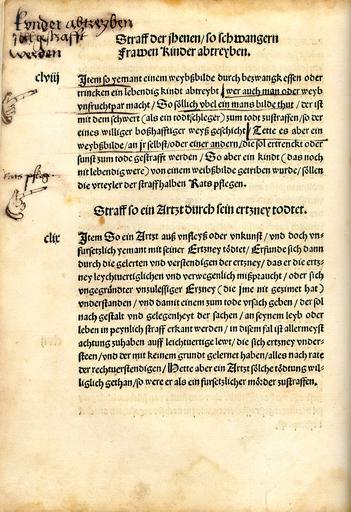 Kynder abtreyben
werden
Straff der jhenen/ so schwangern
Frawen Kinder abtreyben.
clviij
Jtem so yemant einem weybßbilde durch bezwangk essen oder
trincken ein lebendig kindt abtreybt/ wer auch man oder weyb
vnfruchtpar macht/ So söllich vbel eins mans bilde thut/ der ist
mit dem schwert (als ein todtschleger) zum todt zustraffen/ so der
eines williger boßhafftiger weyß geschicht/ Tette es aber ein
weybßbilde/ an jr selbst/ oder einer andern/ die sol ertrenckt oder
sunst zum tode gestrafft werden/ So aber ein kindt (das noch
nit lebendig were) von einem weißbilde getriben wurde/ söllen
die vrteyler der straffhalben Rats pflegen.
Straff so ein Artzt durch sein ertzney tödtet.
clix
Jtem So ein Artzt auß vnfleyß oder vnkunst/ vnd doch vn-
fursetzlich yemant mit seiner Ertzney tödtet/ Erfunde sich dann
durch die gelerten vnd verstendigen der ertzney/ das er die ertz-
ney leychtuertiglichen vnd verwegenlich mißpraucht/ oder sich
vngegründter vnzulessiger Ertzney (die jme nit gezimet hat)
vnderstanden/ vnd damit einem zum tode vrsach geben/ der sol
nach gestalt vnd gelegenheyt der sachen/ an seynem leyb oder
leben in peynlich straff erkant werden/ in disem fal ist allermeyst
achtung zuhaben auff leichtuertige lewt/ die sich ertzney vnder-
steen/ vnd der mit keinem grundt gelernet haben/ alles nach rate
der rechtuerstendigen/ Hette aber ein Artzt sölche tödtung wil-
liglich gethan/ so were er als ein fursetzlicher mörder zustraffen.